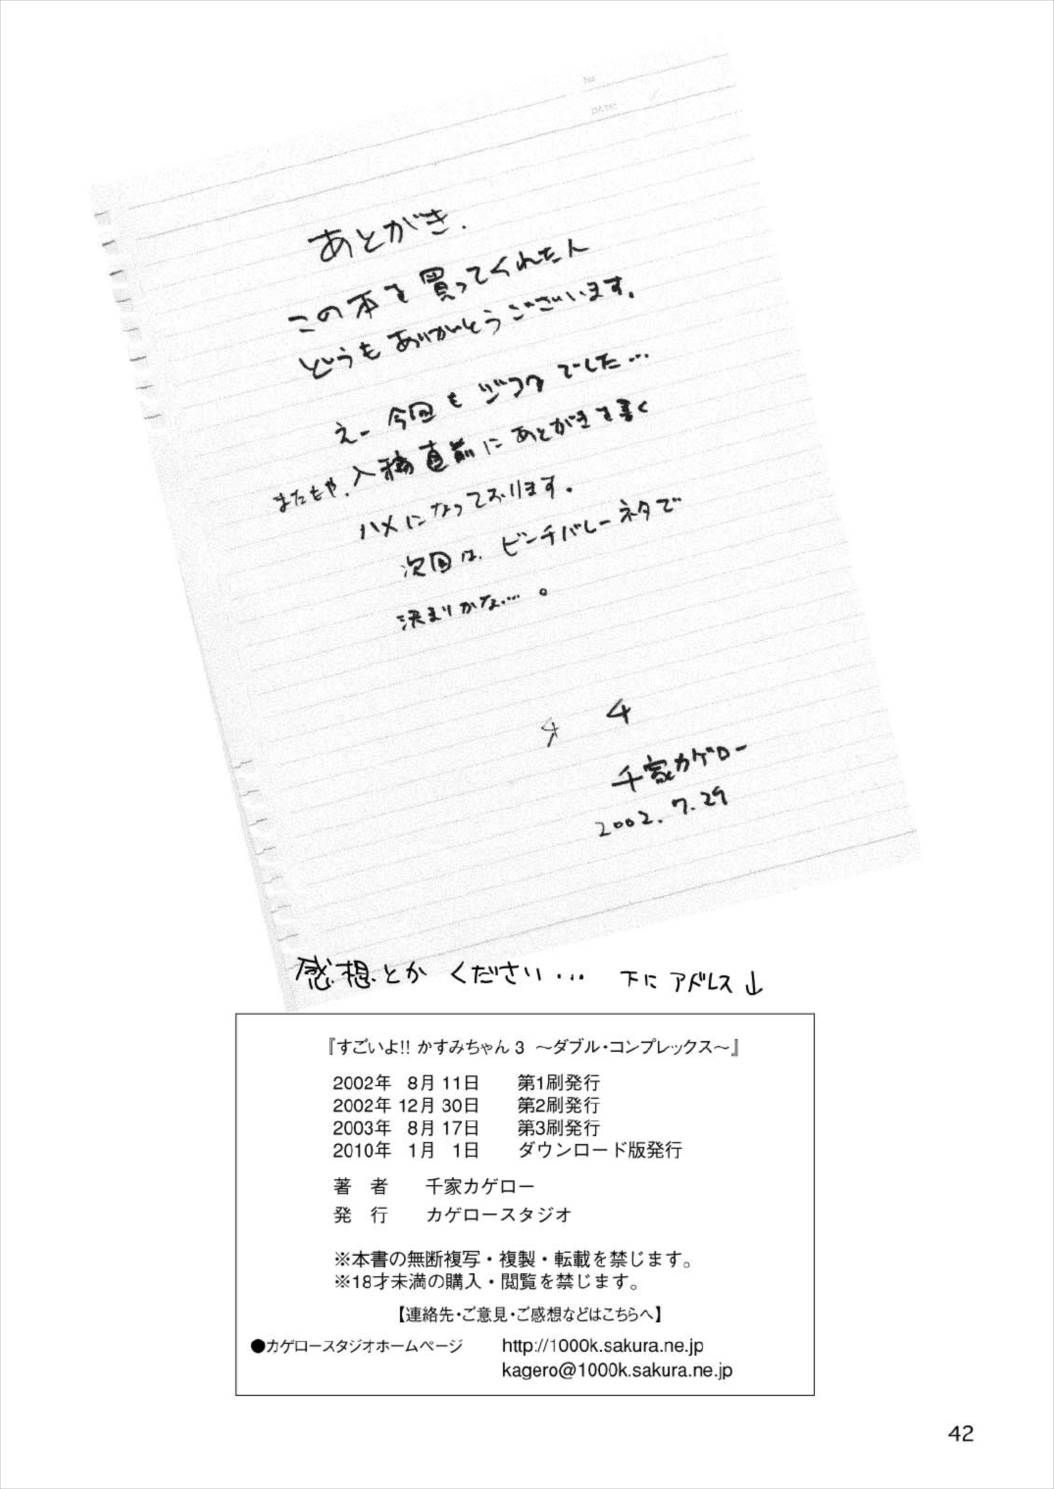 No.
DATE
あとがき.
この本を買ってくれた人
どうもありがとうございます。
えー今回も でした…
またもや、入稿直前にあとがきを書く
ハメになっております。
次回は、ビーチバレーネタで
決まりかな…。
千家カゲロー
2002.7.29
感想とかください… 下にアドレス↓
『すごいよ!! かすみちゃん 3 ～ダブル・コンプレックス～』
2002年 8月 11日 第1刷発行
2002年 12月 30日 第2刷発行
2003年 8月 17日 第3刷発行
2010年 1月 1日 ダウンロード版発行
著 者 千家カゲロー
発 行 カゲロースタジオ
※本書の無断複写・複製・転載を禁じます。
※18才未満の購入・閲覧を禁じます。
【連絡先・ご意見・ご感想などはこちらへ】
●カゲロースタジオホームページ http://1000k.sakura.ne.jp
kagero@1000k.sakura.ne.jp
42